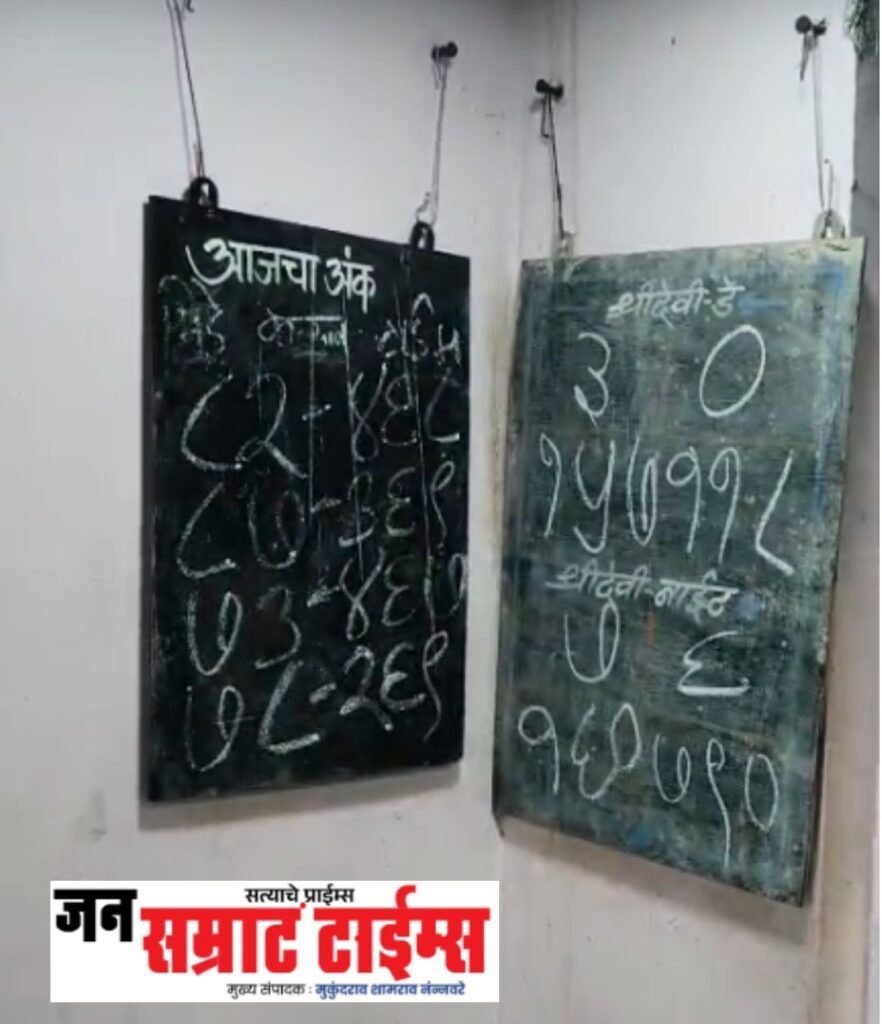 आजचा अंक
८२-४६८
८७-३६९
७३-४६७
७८-२६९
श्रीदेवी-डे
३ ०
१५७११८
श्रीदेवी-नाईट
७ ६
१६०७९०
सत्याचे प्राईम्स
जन सम्राट टाईम्स
मुख्य संपादक : मुकुंदराव शामराव नंन्नवरे